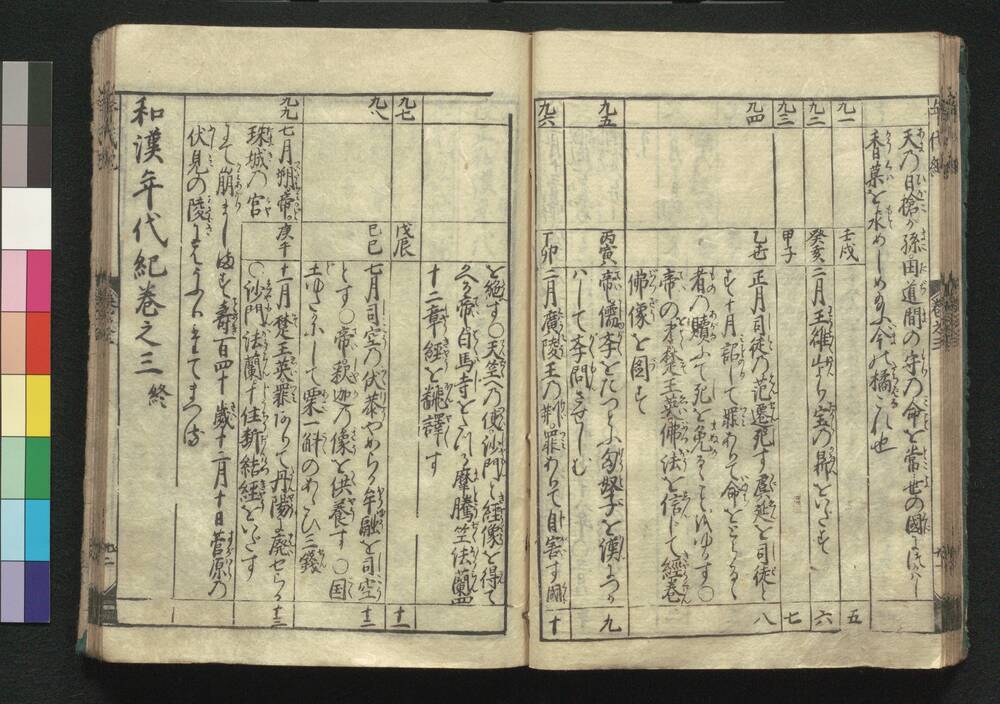 天の日槍が孫田道間の守の命を常世の國につかハし
香菓を求めしめ給ふ今の橘これ也
九一
壬戌
五
九二
癸亥
二月王雒山より宝の鼎をいだす
六
九三
甲子
七
九四
乙丑
正月司徒の范遷死す虞延を司徒と
者の贖ふて死を免るゝ事をゆるす○
帝の才楚王英佛法を信じて經卷
佛像を圖す
八
九五
丙寅
帝
匈奴子を漢につか
ハして学問させしむ
九
九六
丁卯
二月廣陵王の荊罪ありて自害す國
十
を絶す○天竺への使沙門と経像を得て
帝白馬寺をたつる摩騰竺法蘭四
十二章經を翻譯す
九七
戊辰
十一
九八
己巳
七月司空の伏恭やめらる牟融を司空
とす○帝釈迦の像を供養す○国
土ゆたかにして粟一斛のあたひ三錢
十二
九九
七月朔帝
珠城の宮
にて崩まし
壽百四十歳十二月十日菅原の
伏見の陵
庚午
十一月楚王英罪ありて丹陽に廃せらる
○沙門法蘭十住断結経をいだす
十三
和漢年代紀巻之三終